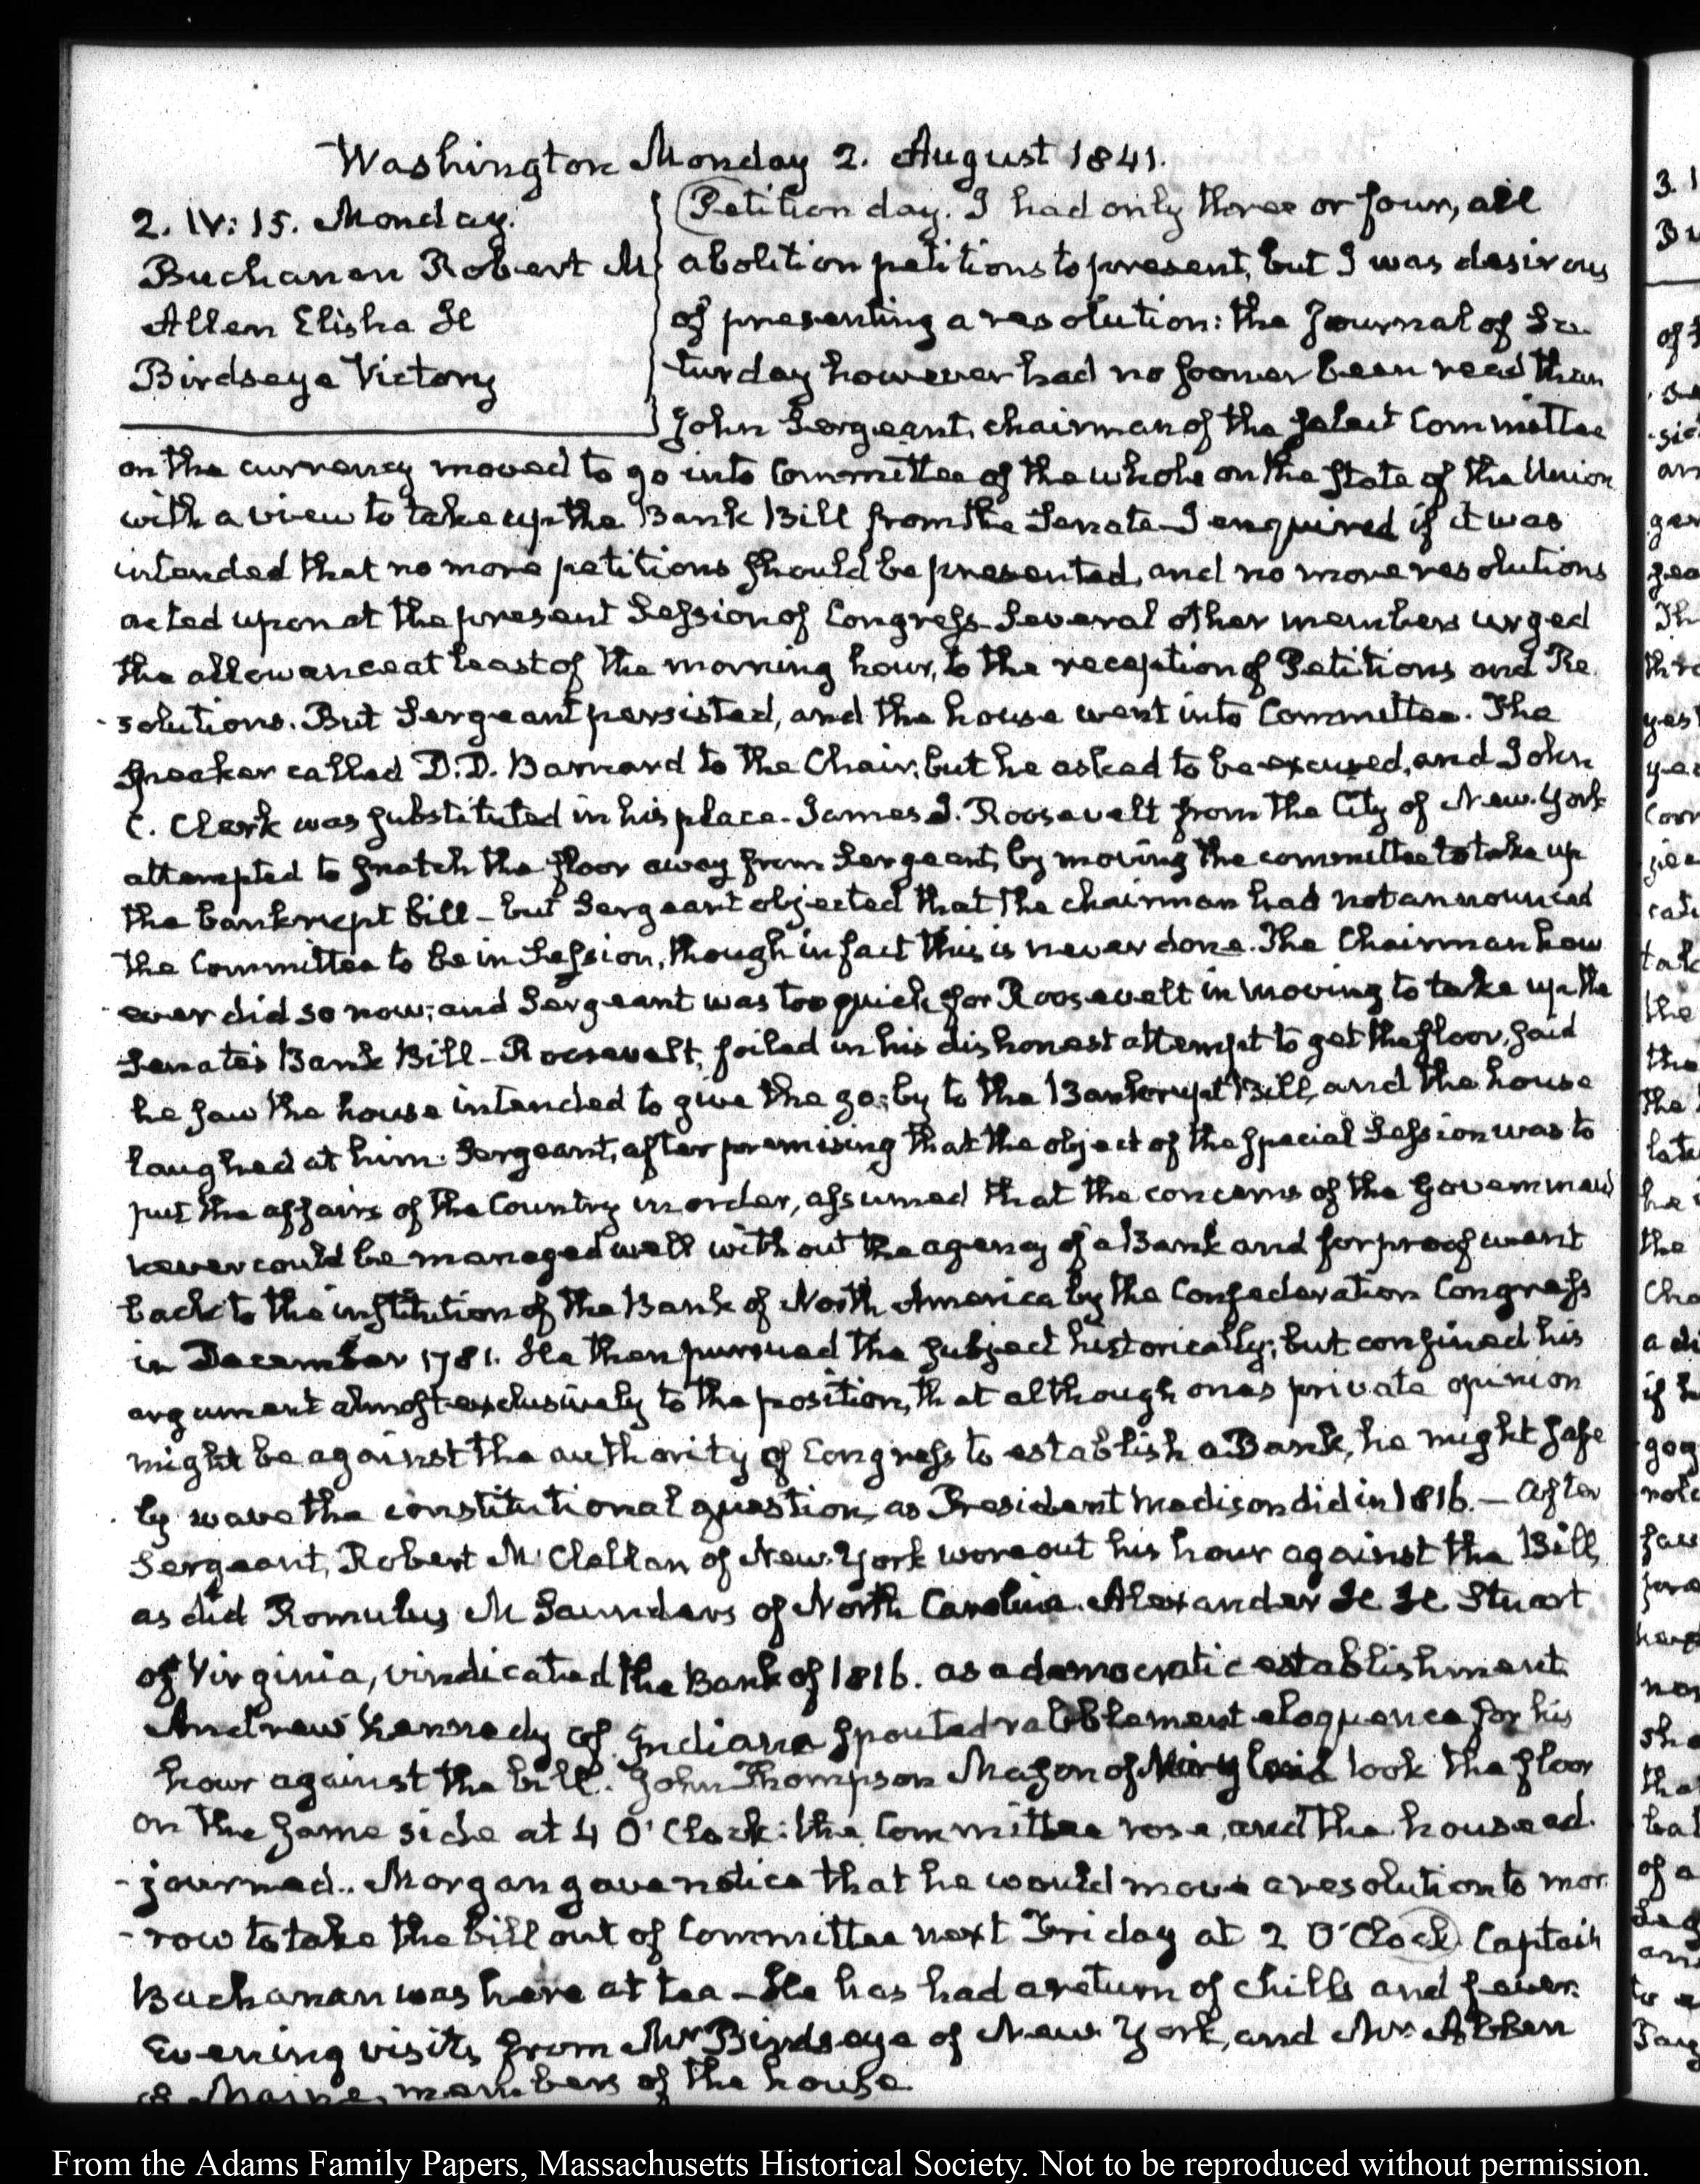 Washington Monday 2. August 1841.
2. IV: 15. Monday.
Buchanan Robert M
Allen Elisha H
Birdseye Victory
Petition day. I had only three or four, all
abolition petitions to present, but I was desirous
of presenting a resolution: the Journal of Sa-
turday however had no sooner been read than
John Sergeant, chairman of the select Committee
on the currency moved to go into Committee of the whole on the state of the Union
with a view to take up the Bank Bill from the Senate. I enquired if it was
intended that no more petitions should be presented, and no more resolutions
acted upon at the present Session of Congress. Several other members urged
the allowance at least of the morning hour, to the reception of Petitions and Re
-solutions. But Sergeant persisted, and the house went into Committee. The
Speaker called D. D. Barnard to the Chair, but he asked to be excused, and John
C. Clark was substituted in his place. James I. Roosevelt from the City of New-York
attempted to snatch the floor away from Sergeant, by moving the committee to take up
the bankrupt bill - but Sergeant objected that the chairman had not announced
the Committee to be in Session, though in fact this is never done. The Chairman how
-ever did so now; and Sergeant was too quick for Roosevelt in moving to take up the
Senate's Bank Bill - Roosevelt, foiled in his dishonest attempt to get the floor, said
he saw the house intended to give the go-by to the Bankrupt Bill, and the house
laughed at him. Sergeant, after premising that the object of the special Session was to
put the affairs of the Country in order, assumed that the concerns of the Government
never could be managed well without the agency of a Bank and for proof went
back to the institution of the Bank of North America by the Confederation Congress
in December 1781. He then pursued the subject historically; but confined his
argument almost exclusively to the position, that although ones private opinion
might be against the authority of Congress to establish a Bank, he might safe
-ly wave the constitutional question, as President Madison did in 1816. - After
Sergeant, Robert McClellan of New-York wore out his hour against the Bill,
as did Romulus M Saunders of North Carolina. Alexander H H Stuart
of Virginia, vindicated the Bank of 1816. as a democratic establishment.
Andrew Kennedy of Indiana spouted rabblement eloquence for his
hour against the bill. John Thompson Mason of Maryland took the floor
on the same side at 4 O'Clock: the Committee rose, and the house ad-
-journed.. Morgan gave notice that he would move a resolution to mor-
-row to take the bill out of Committee next Friday at 2 O'Clock Captain
Buchanan was here at tea - He has had a return of chills and fever.
Evening visits from Mr Birdseye of New-York, and Mr Allen
of Maine, members of the house.